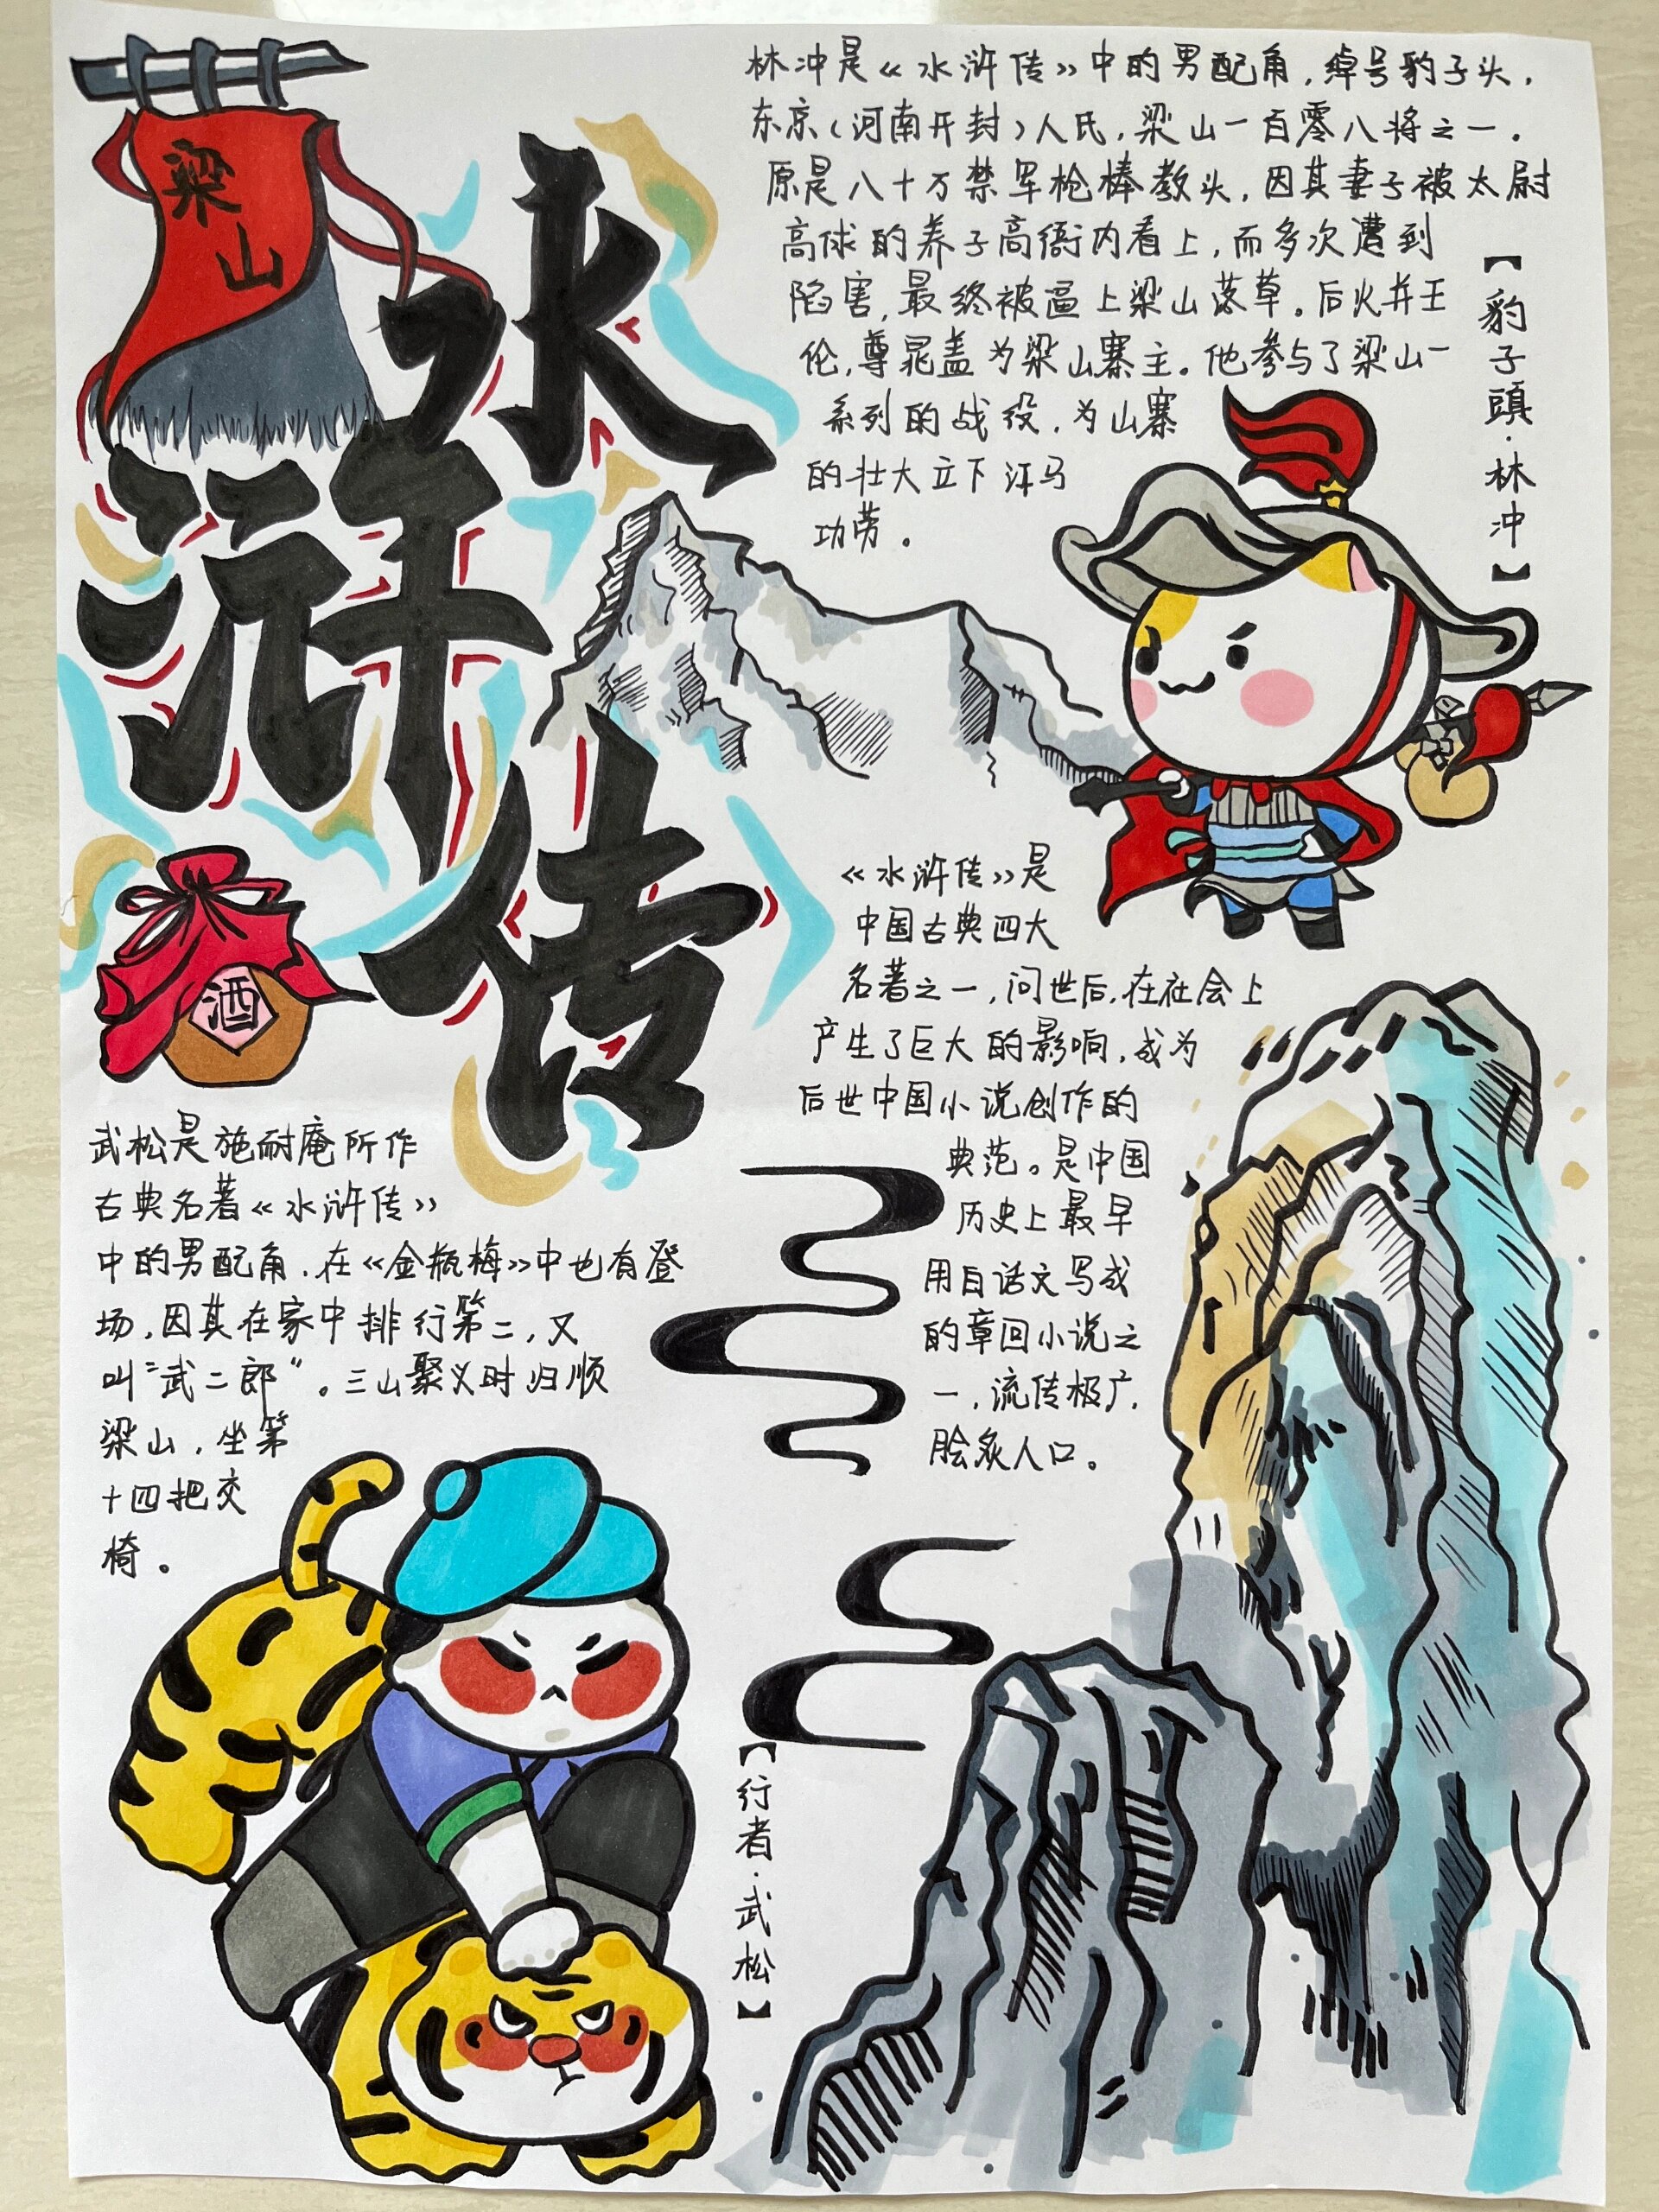 梁
山
水
浒
传
酒
林冲是《水浒传》中的男配角，绰号豹子头，
东京（河南开封）人氏，梁山一百零八将之一。
原是八十万禁军枪棒教头，因其妻子被太尉
高俅的养子高衙内看上，而多次遭到
陷害，最终被逼上梁山落草。后火并王
伦，尊晁盖为梁山寨主。他参与了梁山一
系列的战役，为山寨
的壮大立下汗马
功劳。
【豹子頭·林冲】
《水浒传》是
中国古典四大
名著之一，问世后，在社会上
产生了巨大的影响，成为
后世中国小说创作的
典范。是中国
历史上最早
用白话文写成
的章回小说之
一，流传极广，
脍炙人口。
武松是施耐庵所作
古典名著《水浒传》
中的男配角，在《金瓶梅》中也有登
场，因其在家中排行第二，又
叫“武二郎”。三山聚义时归顺
梁山，坐第
十四把交
椅。
【行者·武松】